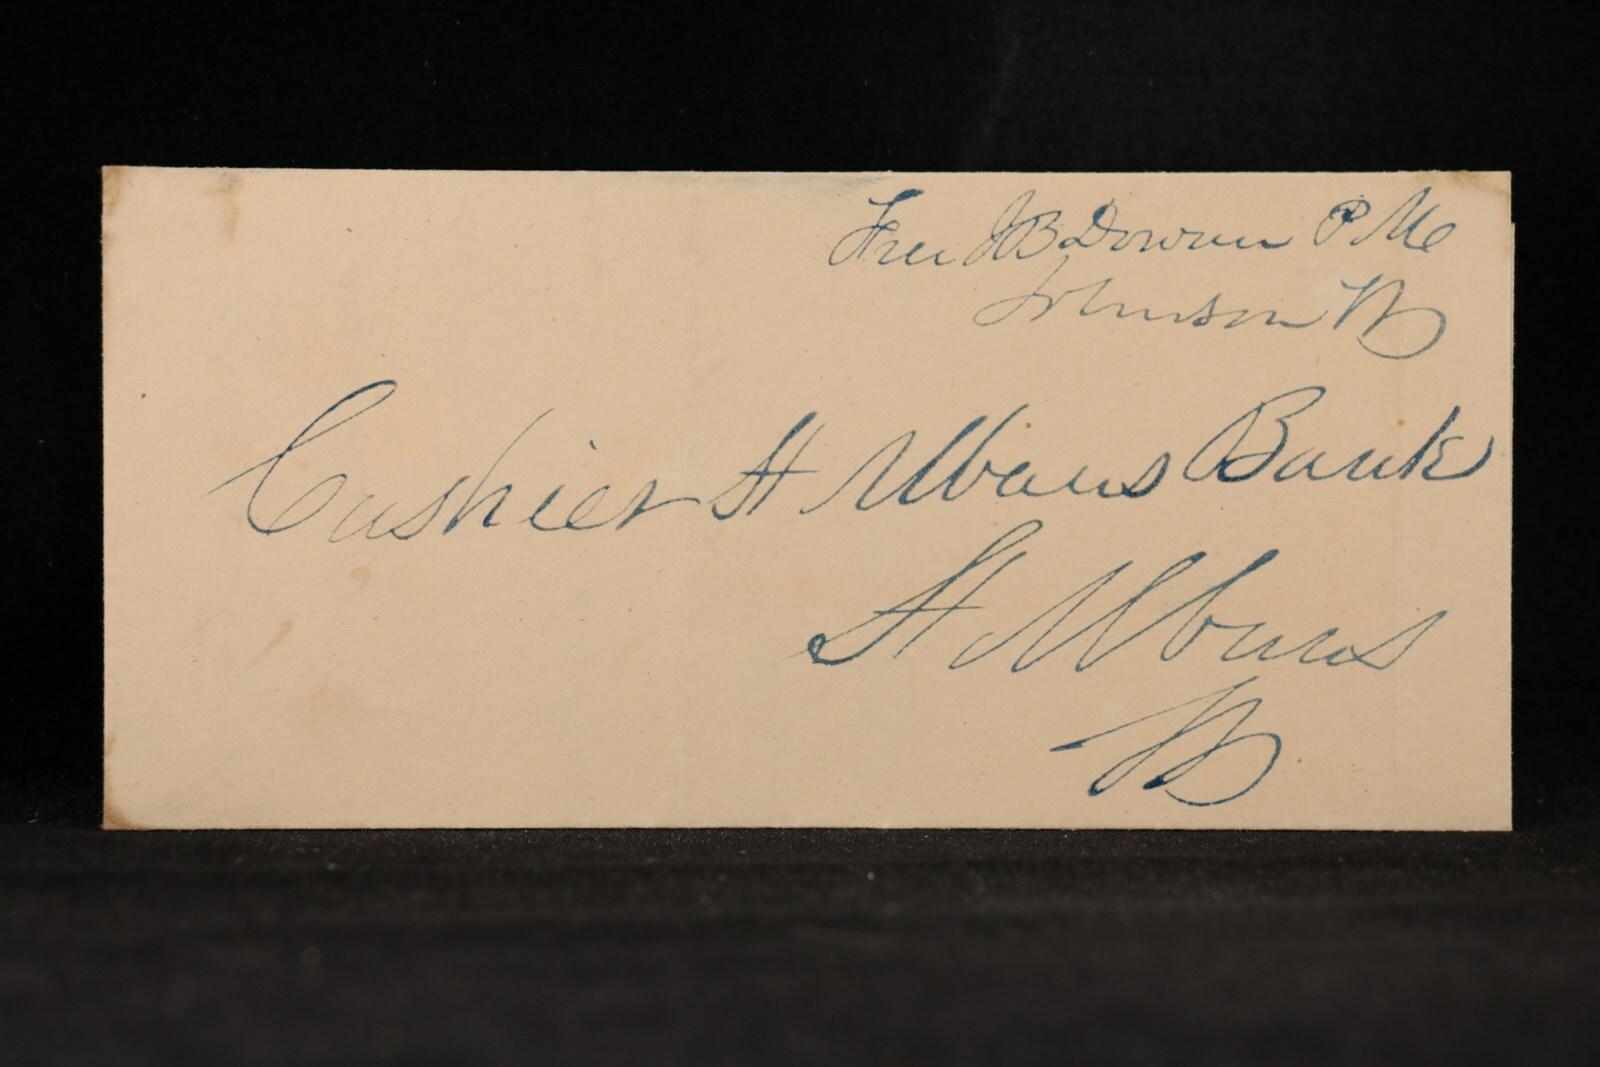 Free J B Downer P M
Johnson Vt
Cashier St Albans Bank
St Albans
Vt